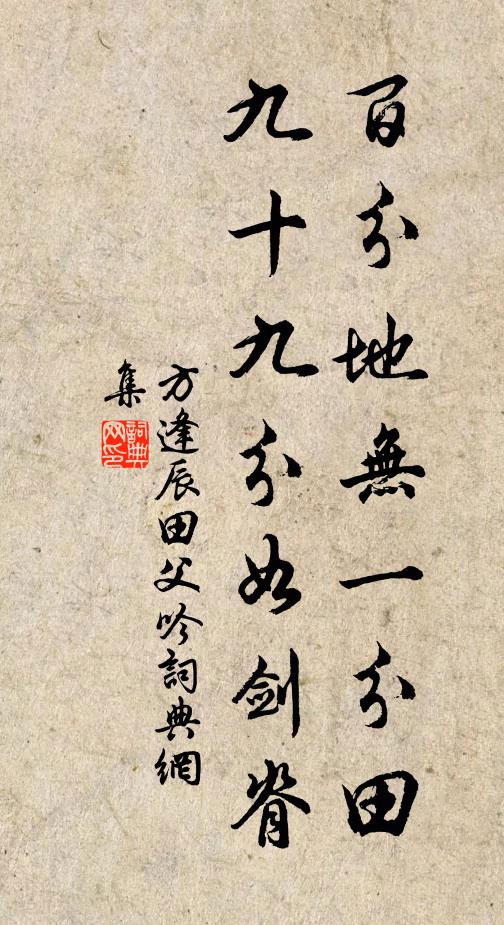 百分地無一分田
九十九分如剑脊
方逢辰田父吟詞典網
集
詞典網印